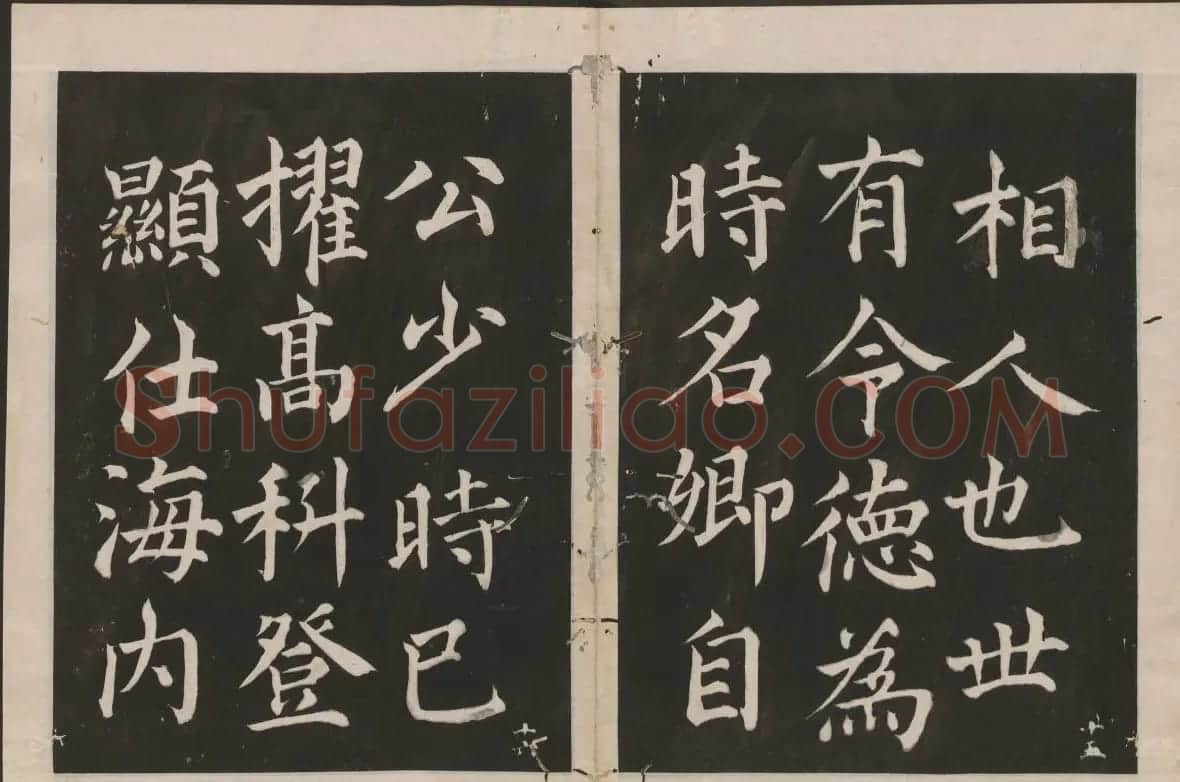 相人也世
有令德為
時名卿自
公少時已
擢高科登
顯仕海内
Shufaziliao.COM